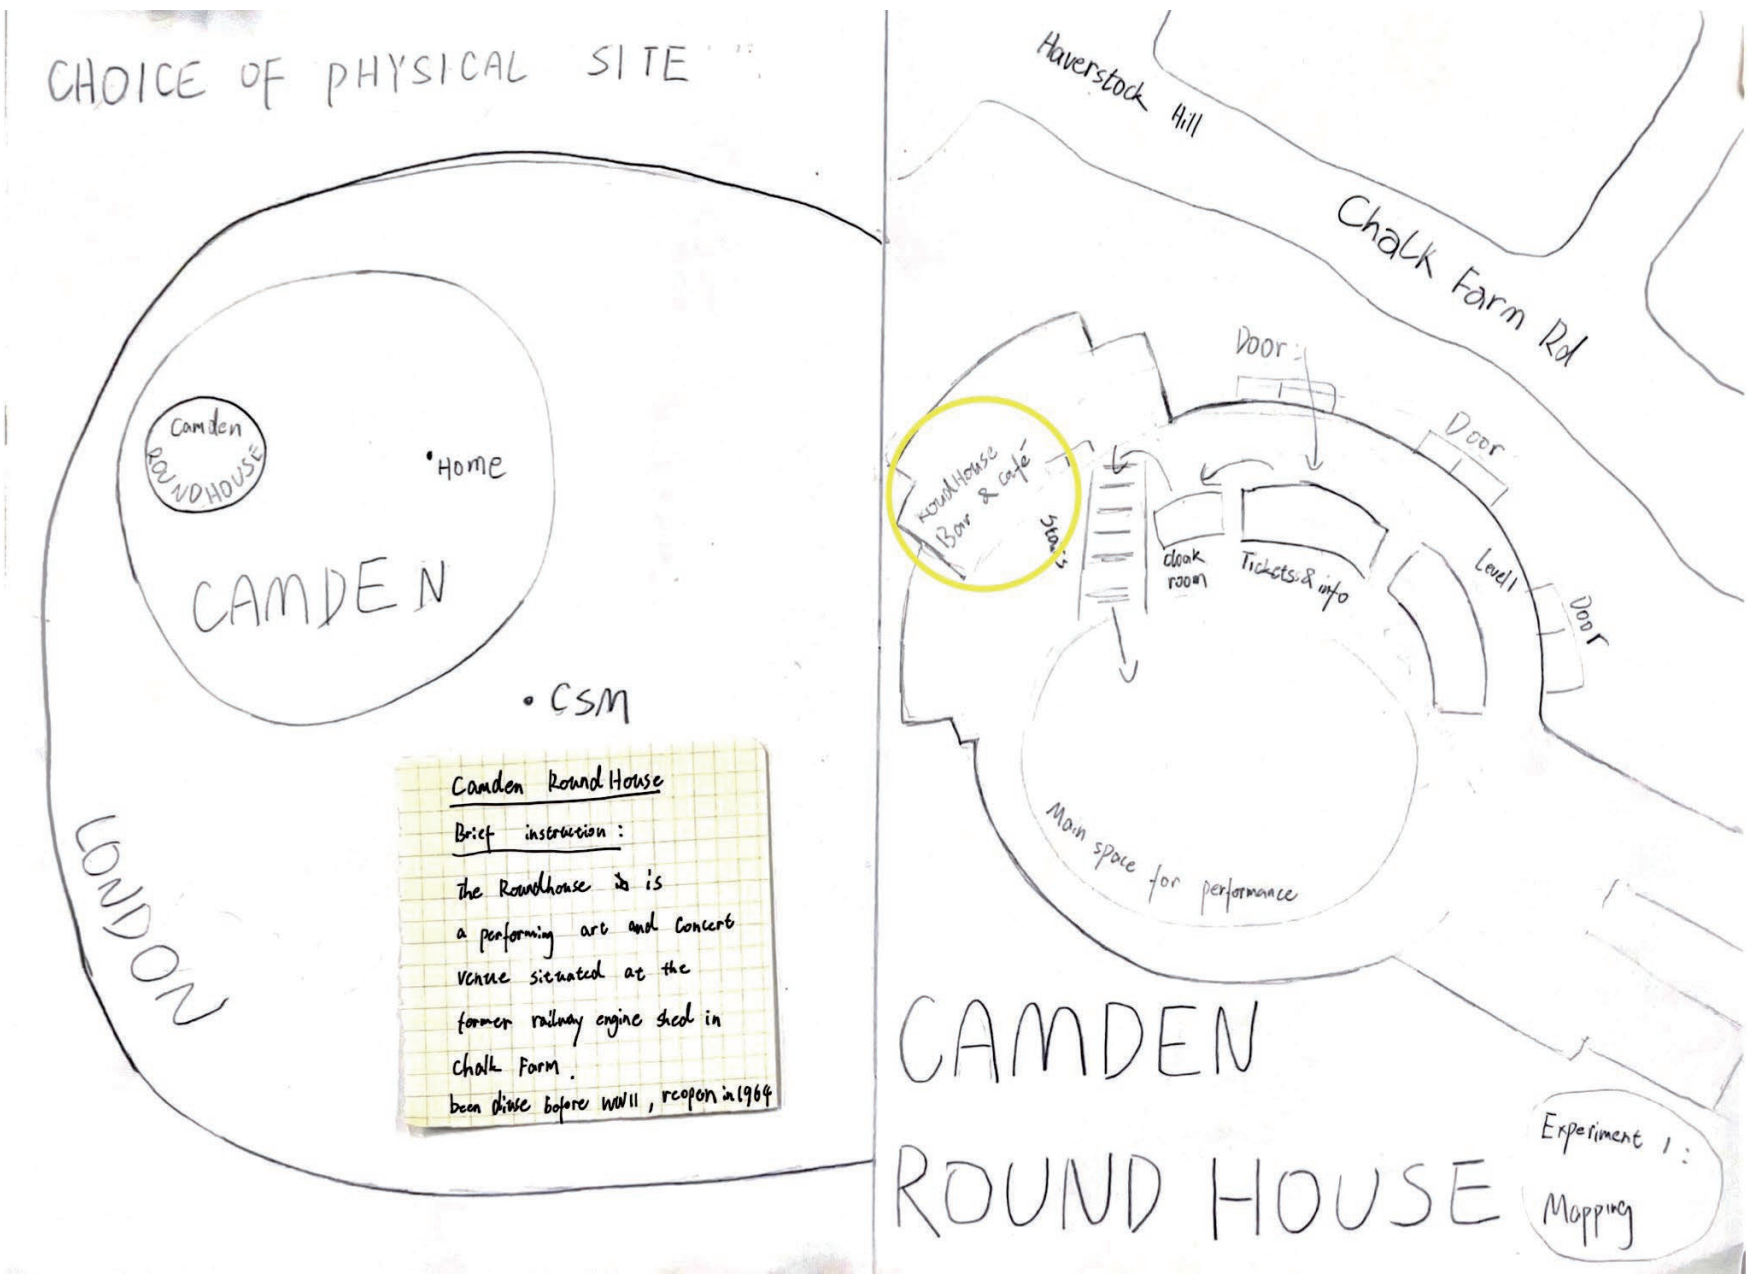 CHOICE OF PHYSICAL SITE
Camden
ROUNDHOUSE
HOME
CAMDEN
CSM
LONDON
Camden Round House
Brief instruction:
The Roundhouse is is
a performing art and Concert
venue situated at the
former railway engine shed in
Chalk Farm.
been disuse before WWII, reopen in 1964
Haverstock Hill
Chalk Farm Rd
Door:
Door
Door
Level 1
Roundhouse
Bar & café
Stairs
cloak
room
Tickets & info
Main space for performance
CAMDEN
ROUND HOUSE
Experiment 1:
Mapping